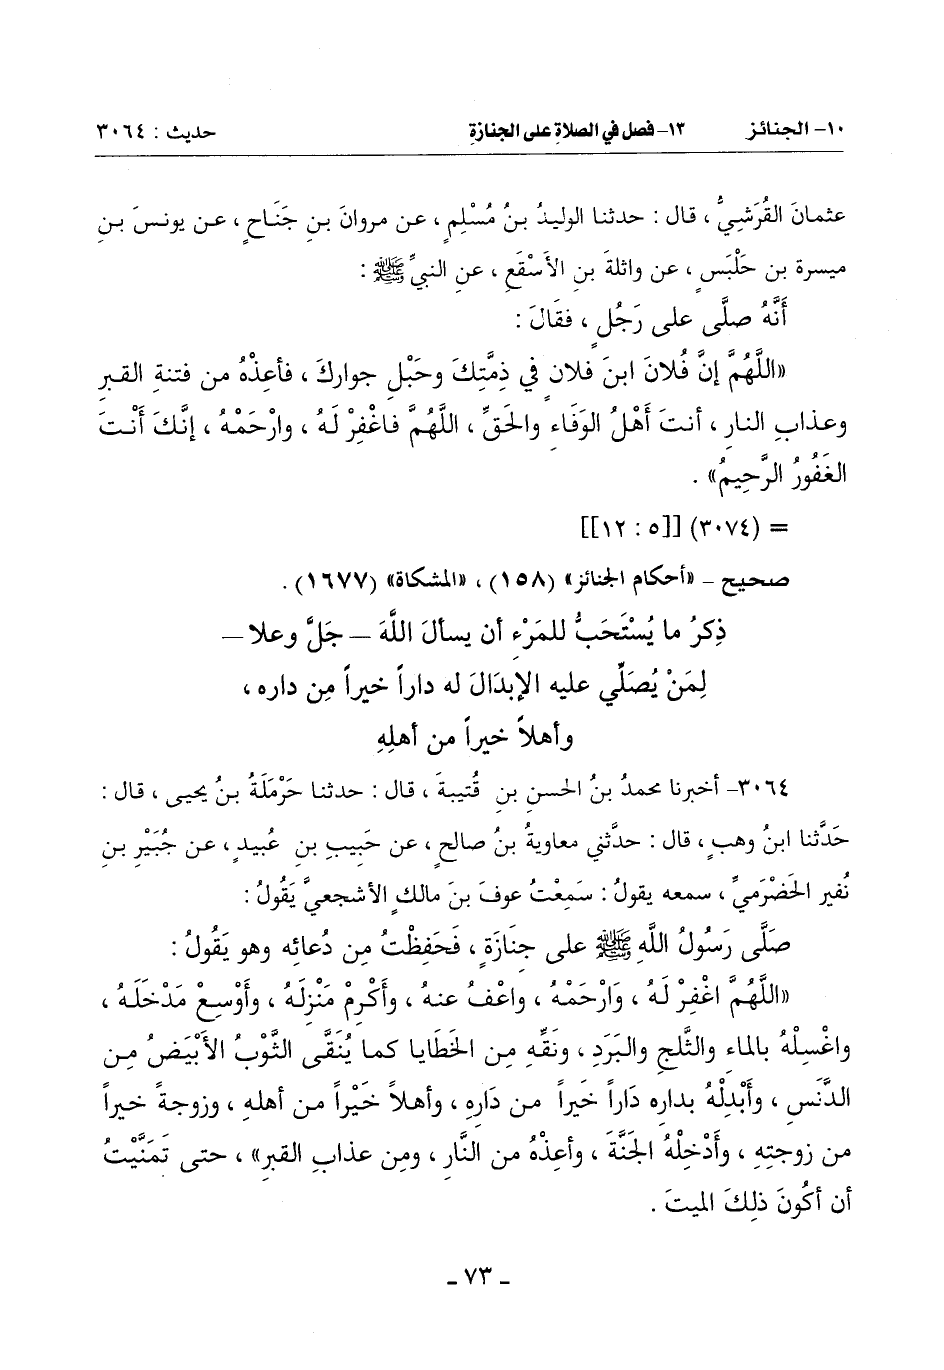 ١٠- الجنائز ١٣- فصل في الصلاةِ على الجنازةِ حديث : ٣٠٦٤
عثمانَ القُرَشِيُّ ، قال : حدثنا الوليدُ بنُ مُسْلِمٍ ، عن مروانَ بنِ جَنَاحٍ ، عن يونسَ بنِ
ميسرة بن حَلْبَسٍ ، عن واثلةَ بنِ الأسْقَعِ ، عنِ النبيِّ ﷺ :
أَنَّهُ صلَّى على رَجُلٍ ، فقَالَ :
«اللَّهُمَّ إنَّ فُلانَ ابنَ فلانٍ في ذِمَّتِكَ وحَبْلِ جوارِكَ ، فأعِذْهُ من فتنةِ القبرِ
وعذابِ النارِ ، أنتَ أهْلُ الوَفَاءِ والحَقِّ ، اللَّهُمَّ فاغْفِرْ لَهُ ، وارْحَمْهُ ، إنَّكَ أَنْتَ
الغَفُورُ الرَّحِيمُ» .
= (٣٠٧٤) [[٥ : ١٢]]
صحيح – «أحكام الجنائز» (١٥٨) ، «المشكاة» (١٦٧٧) .
ذِكرُ ما يُسْتَحَبُّ للمَرْءِ أن يسألَ اللَّهَ – جَلَّ وعلا –
لِمَنْ يُصَلِّي عليه الإبدَالَ له داراً خيراً مِن داره ،
وأهلاً خيراً من أهلِهِ
٣٠٦٤- أخبرنا محمدُ بنُ الحسنِ بنِ قُتيبةَ ، قال : حدثنا حَرْمَلَةُ بنُ يحيى ، قال :
حَدَّثنا ابنُ وهبٍ ، قال : حدَّثني معاويةُ بنُ صالحٍ ، عن حَبِيبِ بنِ عُبيدٍ ، عن جُبَيْرِ بنِ
نُفير الحَضْرَميِّ ، سمعه يقولُ : سَمِعْتُ عوفَ بنَ مالكٍ الأشجعيَّ يَقُولُ :
صَلَّى رَسُولُ اللَّهِ ﷺ على جِنَازَةٍ ، فَحَفِظْتُ مِن دُعائِه وهو يَقُولُ :
«اللَّهُمَّ اغْفِرْ لَهُ ، وَارْحَمْهُ ، واعْفُ عنهُ ، وأَكْرِمْ مَنْزِلَهُ ، وأَوْسِعْ مَدْخَلَهُ ،
واغْسِلْهُ بالماءِ والثَّلجِ والبَرَدِ ، ونَقِّهِ مِنَ الخَطَايا كما يُنَقَّى الثَّوْبُ الأبْيَضُ مِنَ
الدَّنَسِ ، وأَبْدِلْهُ بدارِه دَاراً خَيراً من دَارِهِ ، وأهلاً خَيْراً من أهلهِ ، وزوجةً خيراً
من زوجتِهِ ، وأَدْخِلْهُ الجَنَّةَ ، وأعِذْهُ من النَّارِ ، ومِن عذابِ القبرِ» ، حتى تَمَنَّيْتُ
أن أكُونَ ذلِكَ الميتَ .
ـ ٧٣ ـ